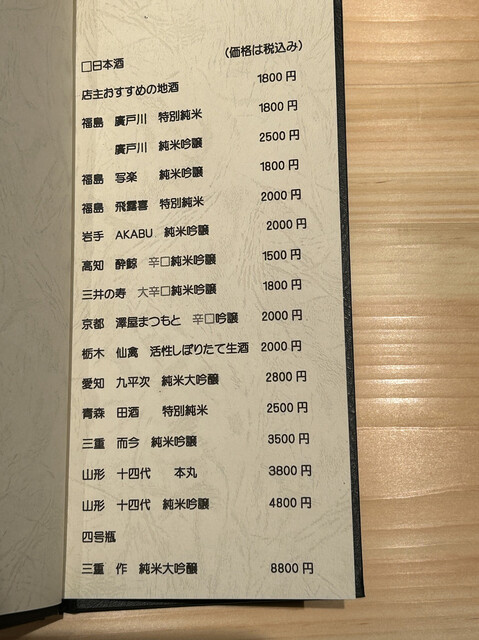 □日本酒　（価格は税込み）
店主おすすめの地酒　1800円
福島　廣戸川　特別純米　1800円
廣戸川　純米吟醸　2500円
福島　写楽　純米吟醸　1800円
福島　飛露喜　特別純米　2000円
岩手　AKABU　純米吟醸　2000円
高知　酔鯨　辛□純米吟醸　1500円
三井の寿　大辛□純米吟醸　1800円
京都　澤屋まつもと　辛□吟醸　2000円
栃木　仙禽　活性しぼりたて生酒　2000円
愛知　九平次　純米大吟醸　2800円
青森　田酒　特別純米　2500円
三重　而今　純米吟醸　3500円
山形　十四代　本丸　3800円
山形　十四代　純米吟醸　4800円
四号瓶
三重　作　純米大吟醸　8800円